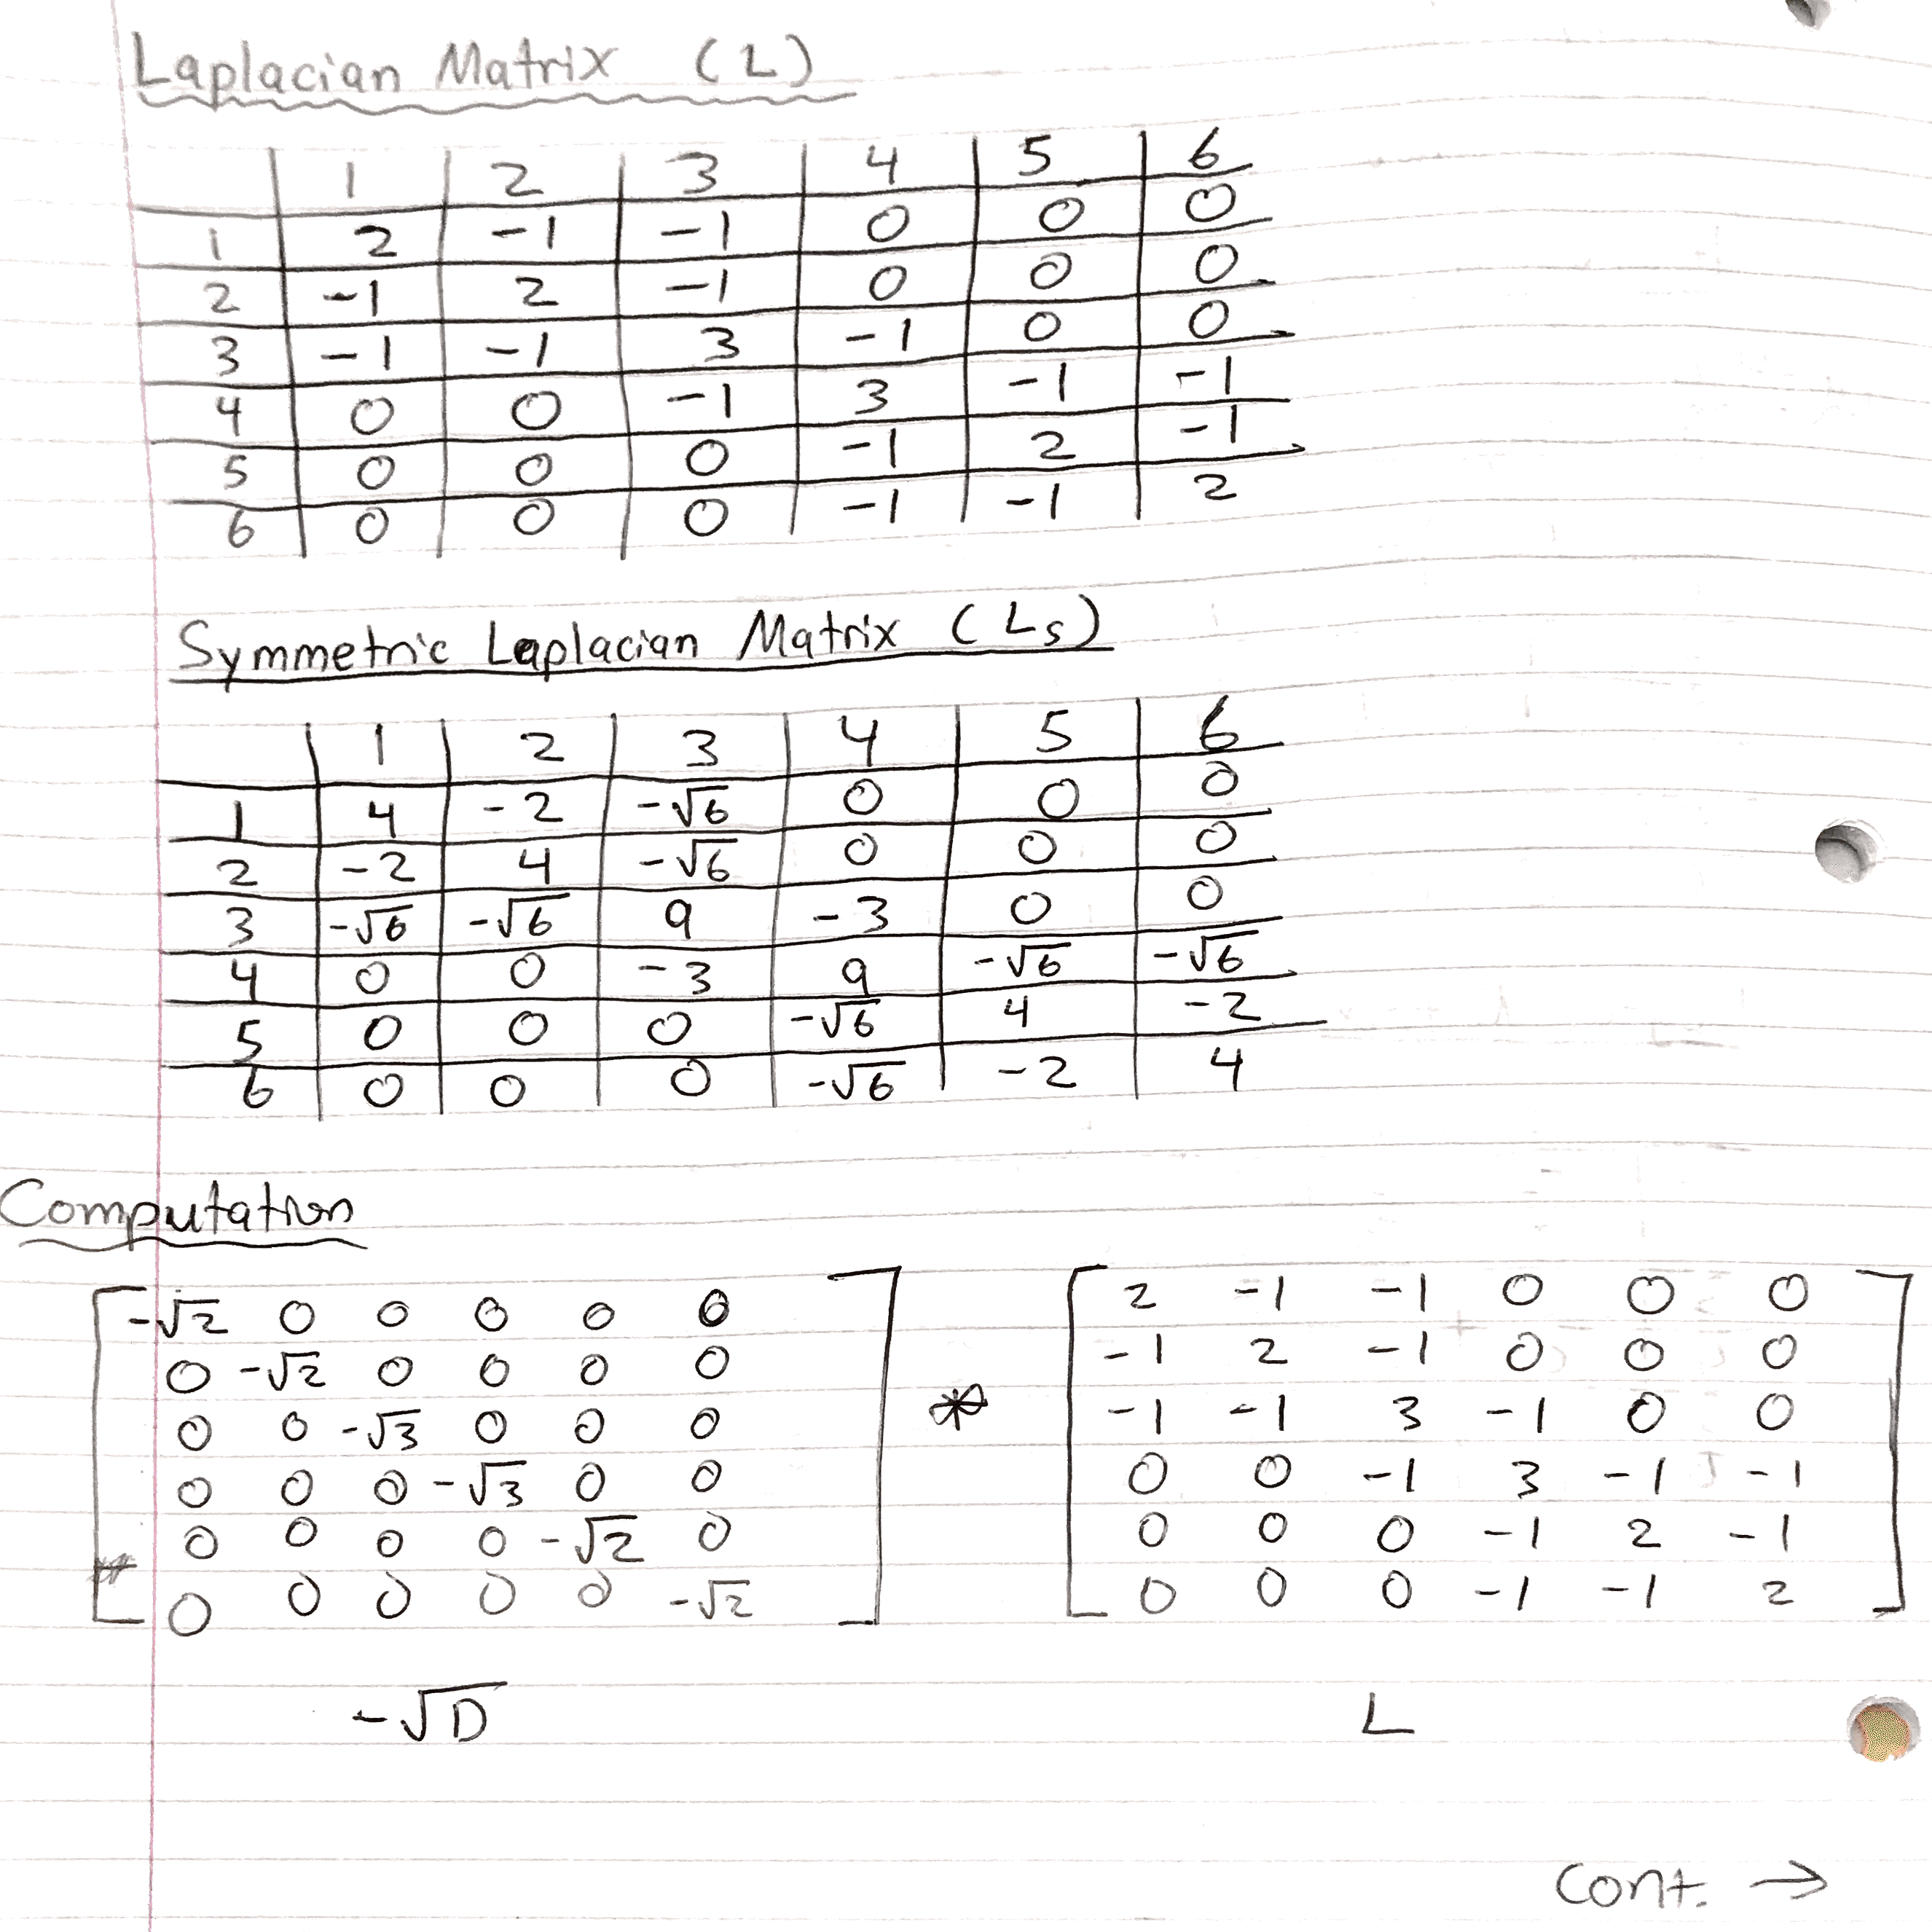 Laplacian Matrix (L)
1 2 3 4 5 6
1 2 -1 -1 0 0 0
2 -1 2 -1 0 0 0
3 -1 -1 3 -1 0 0
4 0 0 -1 3 -1 -1
5 0 0 0 -1 2 -1
6 0 0 0 -1 -1 2
Symmetric Laplacian Matrix (Ls)
1 2 3 4 5 6
1 4 -2 -√6 0 0 0
2 -2 4 -√6 0 0 0
3 -√6 -√6 9 -3 0 0
4 0 0 -3 9 -√6 -√6
5 0 0 0 -√6 4 -2
6 0 0 0 -√6 -2 4
Computation
-√2 0 0 0 0 0 * 2 -1 -1 0 0 0
0 -√2 0 0 0 0 -1 2 -1 0 0 0
0 0 -√3 0 0 0 -1 -1 3 -1 0 0
0 0 0 -√3 0 0 0 0 -1 3 -1 -1
0 0 0 0 -√2 0 0 0 0 -1 2 -1
0 0 0 0 0 -√2 0 0 0 -1 -1 2
-√D L
Cont. →